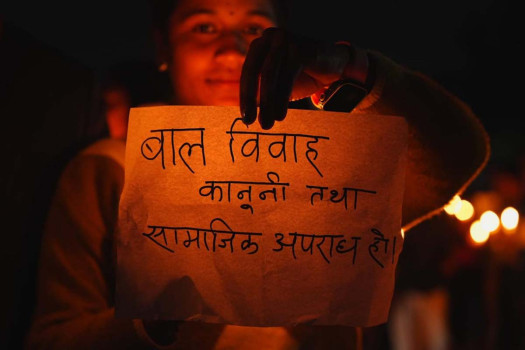 बाल विवाह
कानूनी तथा
सामाजिक अपराध हो।